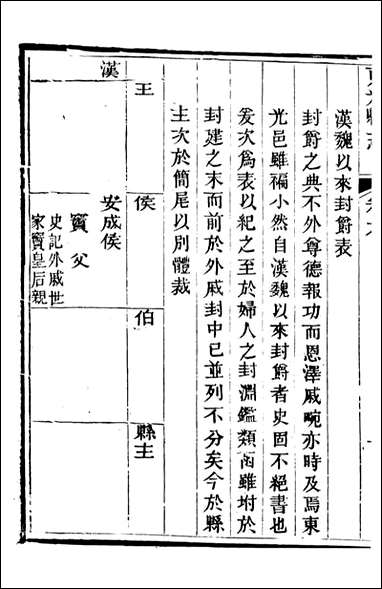 漢魏以來封爵表
封爵之典不外尊德報功而恩澤戚畹亦時及焉東
光邑雖褊小然自漢魏以來封爵者史固不絕書也
爰次為表以紀之至於婦人之封淵鑑類函雖坿於
封建之末而前於外戚封中已並列不分矣今於縣
主次於簡尾以別體裁
王
侯
伯
縣主
漢
安成侯
竇父
史記外戚世
家竇皇后親